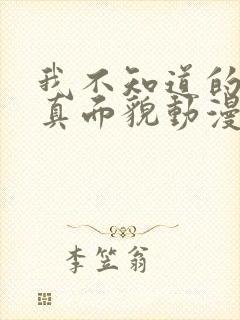 我不知道的
真而貌動漫
李笠翁